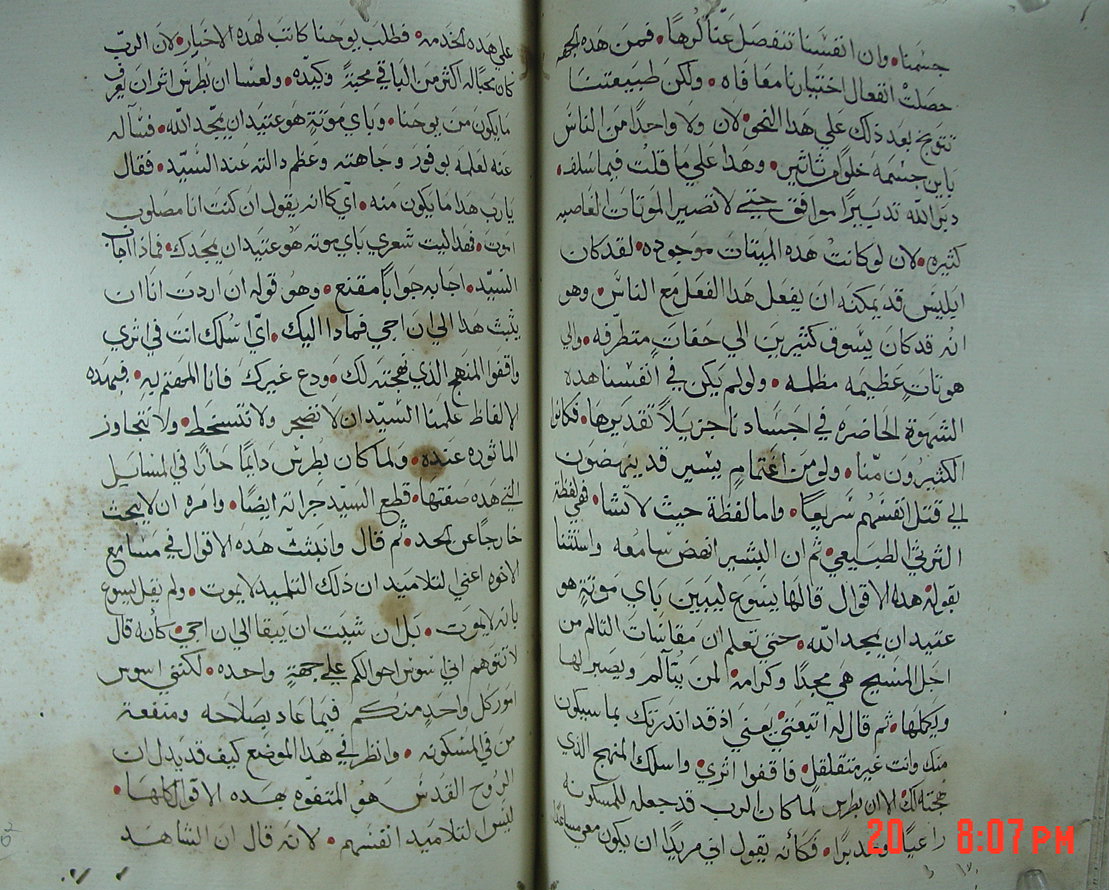 جسمنا وان انفسنا تنفصل عنا كرها فمن هذه الجهه
حصلت انفعال اختيارنا معافاه ولكن طبيعتنا
تتوجع بعد ذلك علي هذا النحو لان ولا واحدا من الناس
باين جسمه خلوا من وهذا علي ما قلت فيما سلف
دبر الله تدبيرا موافق حتي لا تصير الموتات الغاصبه
كثيره لان لو كانت هذه الميتات موجوده لقد كان
ابليس قد يمكنه ان يفعل هذا الفعل مع الناس وهو
انه قد كان يسوق كثيرين الي حفات متطرفه والي
هوتات عظيمه مظلمه ولو لم يكن في انفسنا هذه
الشهوة الحاضره في اجسادنا جزيلا تقديرها فكانوا
الكثيرون منا ولو من اغتمام يسير قد ينهضون
الي قتل انفسهم سريعا واما لفظة حيث لا تشا فهي لفظة
الطبيعي ثم ان البشير انهض سامعه واستثنا
بقوله هذه الاقوال قالها يسوع ليبين باي موتة هو
عتيد ان يمجد الله حتي تعلم ان مقاسات التالم من
اجل المسيح هي مجدا وكرامه لمن يتألم ويصبر لها
ويكملها ثم قال له اتبعني يعني اذ قد انذرتك بما سيكون
منك وانت غير متقلقل فاقفوا اثري واسلك المنهج الذي
نهجته لك الا ان بطرس لما كان الرب قد جعله للمسكونه
راعيا ومدبرا فكأنه يقول اني مريدا ان يكون معي مساعدا
علي هذه الخدمه فطلب يوحنا كاتب لهذه الاخبار لان الرب
كان محبا له اكثر من الباقي محبة وكيده ولعسا ان بطرس اثر ان يعرف
ما يكون من يوحنا وباي موتة هو عتيد ان يمجد الله فسأله
عنه لعلمه بوفور وجاهته وعظم دالته عند السيد فقال
يا رب هذا ما يكون منه اي كانه يقول ان كنت انا مصلوب
اموت فهذا ليت شعري باي موته هو عتيد ان يمجدك فماذا اجاب
السيد اجابه جوابا مقنع وهو قوله ان اردت انا ان
يثبت هذا الي ان اجي فماذا اليك اي اسلك انت في اثري
واقفوا المنهج الذي نهجته لك ودع غيرك فانا المهتم به فبهذه
الالفاظ علمنا السيد ان لا نضجر ولا نتسخط ولا نتجاوز
الماثوره عنده ولما كان بطرس دايما حارا في المسايل
التي هذه صفتها قطع السيد حرارته ايضا وامره ان لا يبحث
خارجا عن الحد ثم قال وانبثت هذه الاقوال في مسامع
الاخوه اعني التلاميذ ان ذلك التلميذ لا يموت ولم يقل يسوع
بانه لا يموت بل ان شيت ان يبقا الي ان اجي كأنه قال
لا تتوهم اني اسوس احوالكم علي جهة واحده لكنني اسوس
امور كل واحد منكم فيما عاد بصلاحه ومنفعة
من في المسكونه وانظر في هذا الموضع كيف قد يدل ان
الروح القدس هو المتفوه بهذه الاقوال كلها
ليس التلاميذ انفسهم لانه قال ان الشاهد
20 8:07 PM